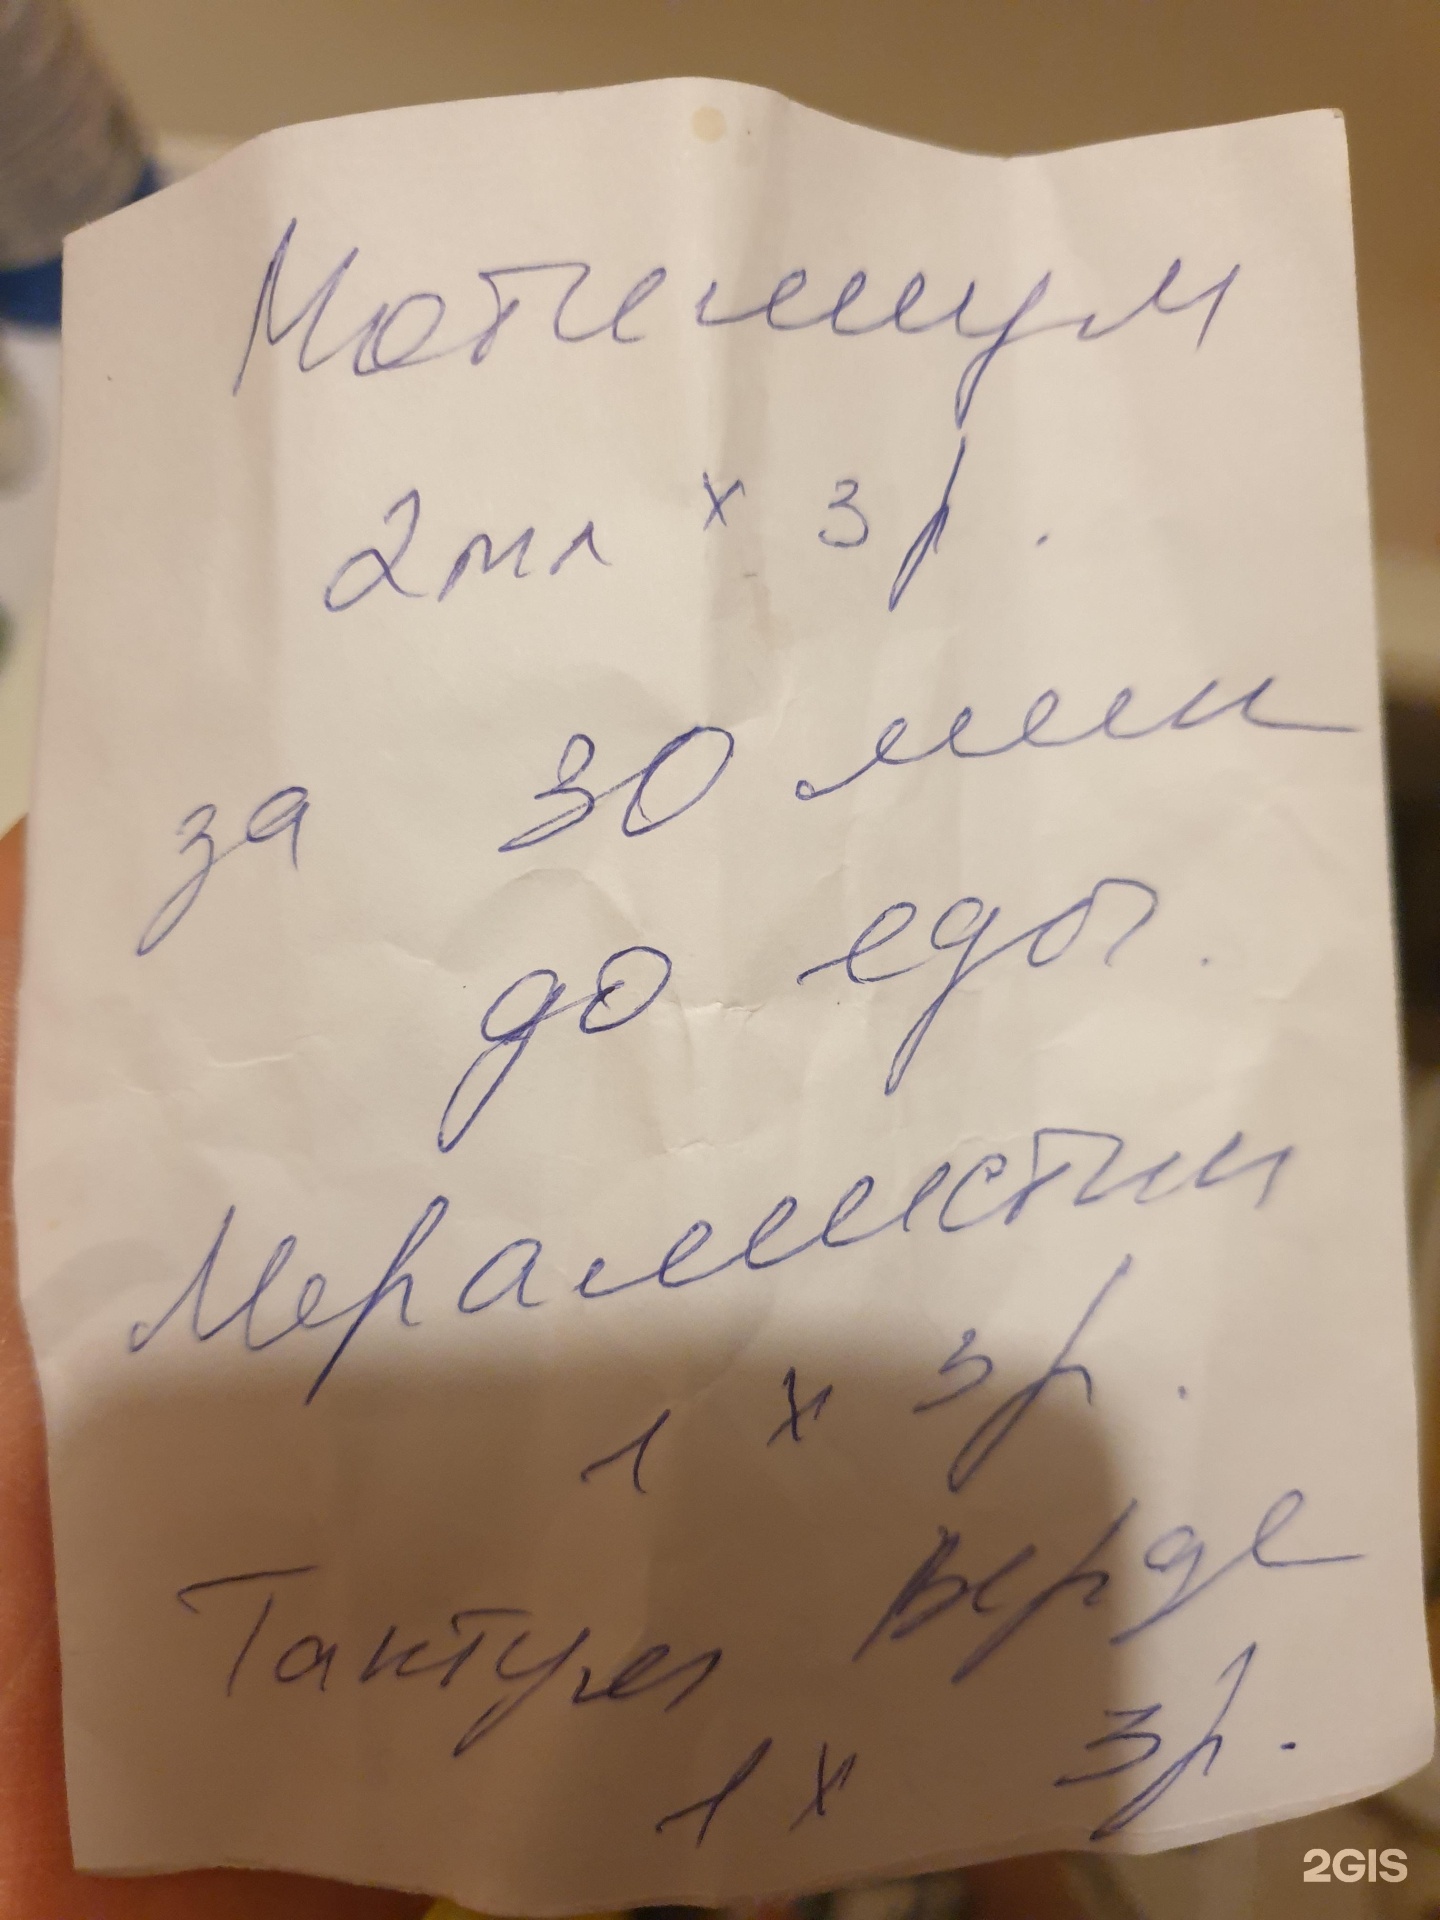 Мотилиум
2мл x 3 р.
за 30 мин
до еды.
Мирамистин
1 x 3 р.
Тантум Верде
1 x 3 р.
2GIS